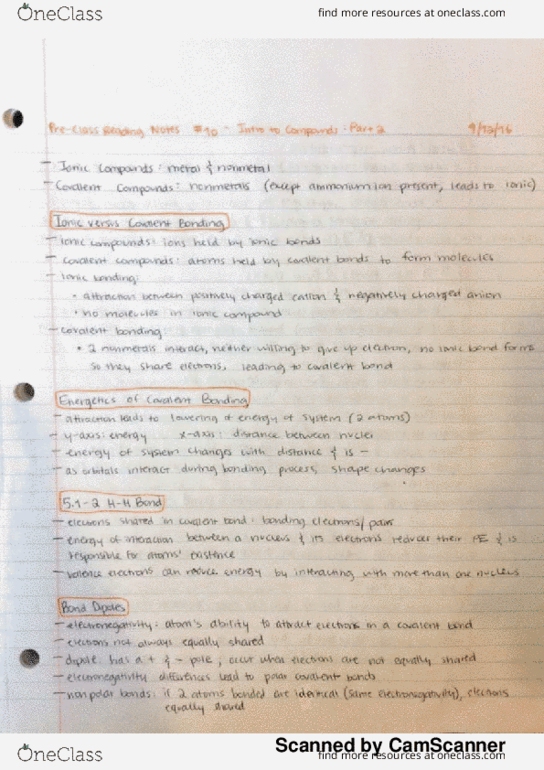 OneClass
find more resources at oneclass.com
Pre-Class Reading Notes #10 - Intro to Compounds - Part 2 9/12/16
- Ionic compounds: metal & nonmetal
- Covalent compounds: nonmetals (except ammonium ion present, leads to ionic)
Ionic versus Covalent Bonding
- ionic compounds: ions held by ionic bonds
- covalent compounds: atoms held by covalent bonds to form molecules
- ionic bonding:
• attraction between positively charged cation & negatively charged anion
• no molecules in ionic compound
- covalent bonding:
• 2 nonmetals interact, neither willing to give up electron, no ionic bond forms
so they share electrons, leading to covalent bond
Energetics of Covalent Bonding
- attraction leads to lowering of energy of system (2 atoms)
- y-axis: energy x-axis: distance between nuclei
- energy of system changes with distance & is -
- as orbitals interact during bonding process, shape changes
5.1-2 H-H Bond
- electrons shared in covalent bond: bonding electrons/pairs
- energy of interaction between a nucleus & its electrons reduces their PE & is
responsible for atoms' existence
- valence electrons can reduce energy by interacting with more than one nucleus
Bond Dipoles
- electronegativity: atom's ability to attract electrons in a covalent bond
- electrons not always equally shared
- dipole has a + & - pole; occur when electrons are not equally shared
- electronegativity differences lead to polar covalent bonds
- nonpolar bonds: if 2 atoms bonded are identical (same electronegativity), electrons
equally shared
Scanned by CamScanner
OneClass
find more resources at oneclass.com